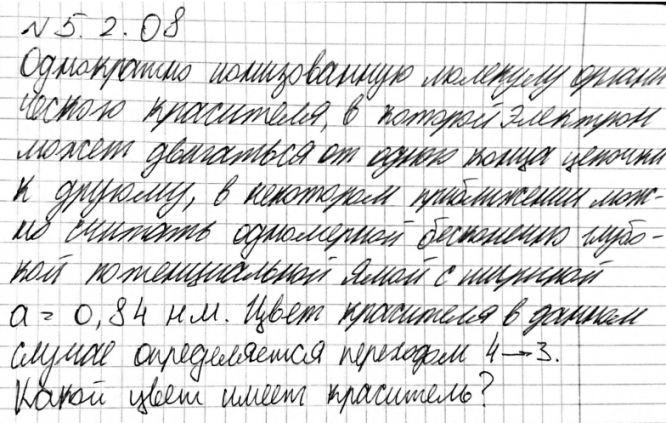 N 5.2.08
Однократно ионизованную молекулу органи
ческого красителя, в которой электрон
может двигаться от одного конца цепочки
к другому, в некотором приближении мож-
но считать одномерной бесконечно глубо-
кой потенциальной ямой с шириной
a = 0,84 нм. Цвет красителя в данном
случае определяется переходом 4→3.
Какой цвет имеет краситель?